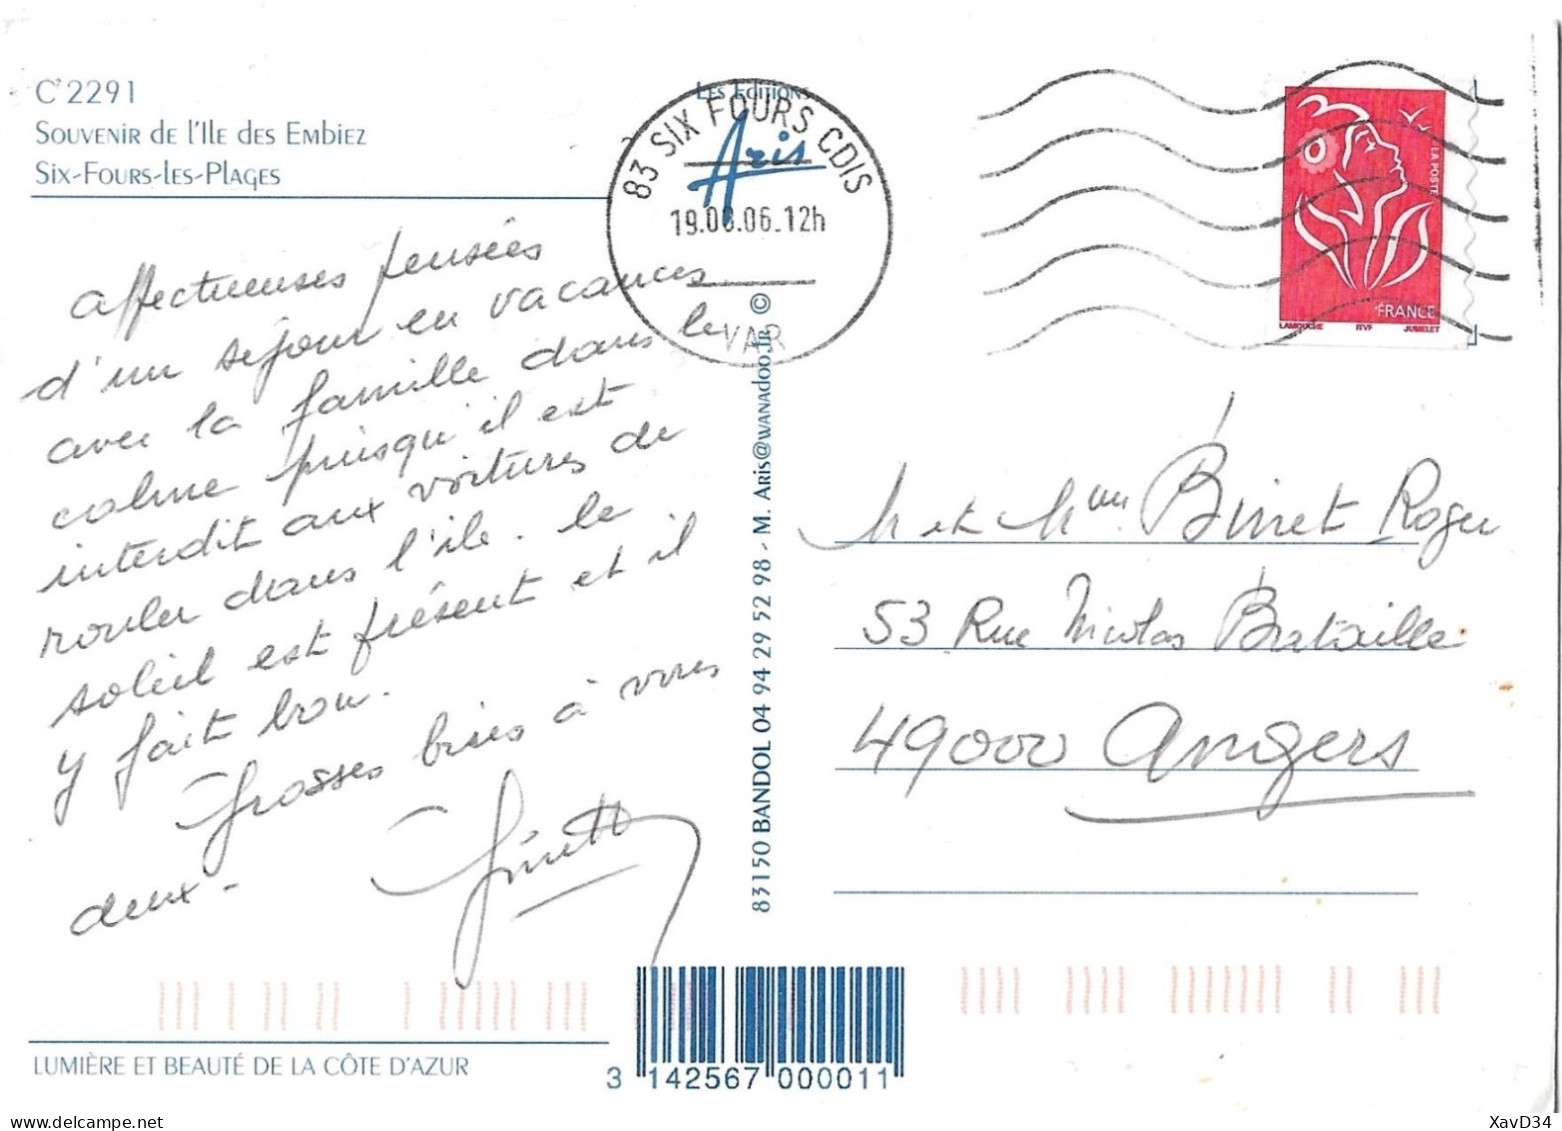 C'2291
Souvenir de l'Ile des Embiez
Six-Fours-les-Plages
Les Editions
Aris
83 SIX FOURS CDIS
19.08.06.12h
VAR
LA POSTE
FRANCE
LAMOUCHE ITVF JUMELET
affectueuses pensées
d'un séjour en vacances
avec la famille dans le
calme puisqu'il est
interdit aux voitures de
rouler dans l'île. le
soleil est présent et il
y fait bon.
Grosses bises à vous
deux -
Ginette
M et Mme Binet Roger
53 Rue Nicolas Bataille
49000 Angers
83150 BANDOL 04 94 29 52 98 - M. Aris@wanadoo.fr ©
LUMIÈRE ET BEAUTÉ DE LA CÔTE D'AZUR
3 142567 000011
XavD34